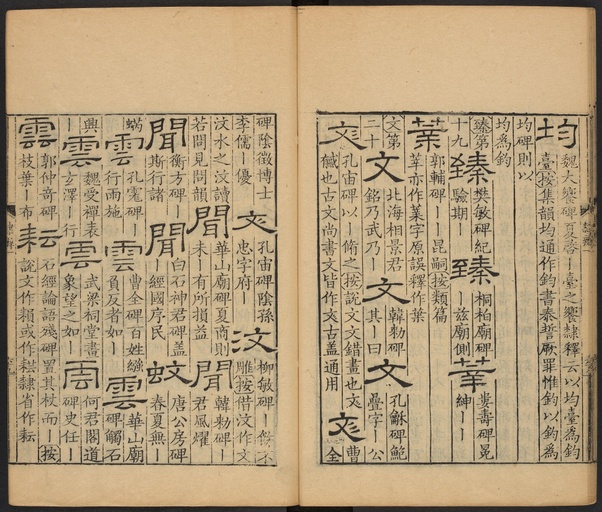 均 魏大饗碑夏啓｜臺之饗隸釋云以均臺爲鈞
臺按集韻均通作鈞書泰誓厥罪惟鈞以鈞爲
均碑則以
均爲鈞
臻第十九 臻 樊敏碑紀驗期｜ 臻 桐柏廟碑｜茲廟側 㙓 婁壽碑冕紳｜｜
郭輔碑｜｜昆嗣按類篇
莘亦作𦶎字原誤釋作葉
文第二十 文 北海相景君銘乃武乃｜ 文 韓勑碑其｜曰 文 孔龢碑鮑疊字｜公
孔宙碑以｜脩之按說文文錯畫也彣
𢒈也古文尚書文皆作彣古蓋通用 彣 曹全
碑陰徵博士李儒｜優 彣 孔宙碑陰孫忠字府｜ 汶 柳敏碑｜
雕按借汶作文
汶水之汶讀若問見問韻 聞 華山廟碑夏商則未｜有所損益 聞 韓勑碑｜君風燿
聞 衡方碑｜斯行諸 聞 白石神君碑蓋經國序民 蚊 唐公房碑春夏無｜
蟎 雲 孔寵碑｜行雨施 雲 曹全碑百姓繈負反者如｜ 雲 華山廟碑觸石
興｜ 雲 魏受禪表玄澤｜行 雲 武梁祠堂畫象望之如｜ 雲 何君閣道碑史任｜
雲 郭仲奇碑枝葉｜布 耘 石經論語殘碑置其杖而｜按
耘 說文作䅵或作耘隸省作耘